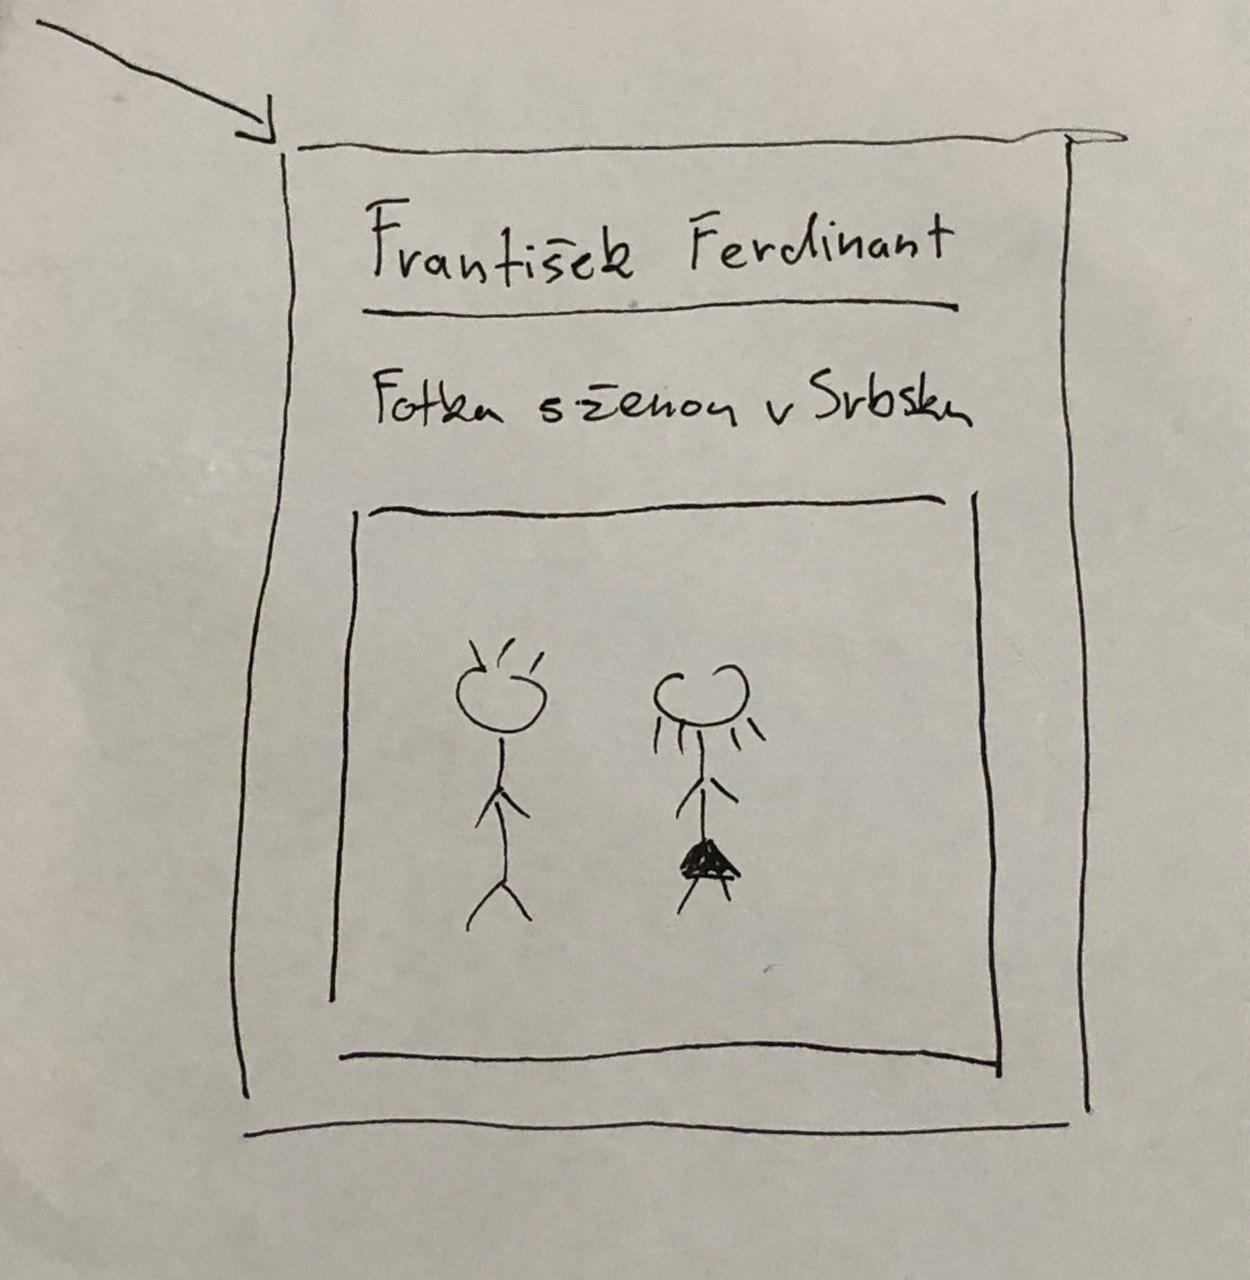 František Ferdinant
Fotka s ženou v Srbsku